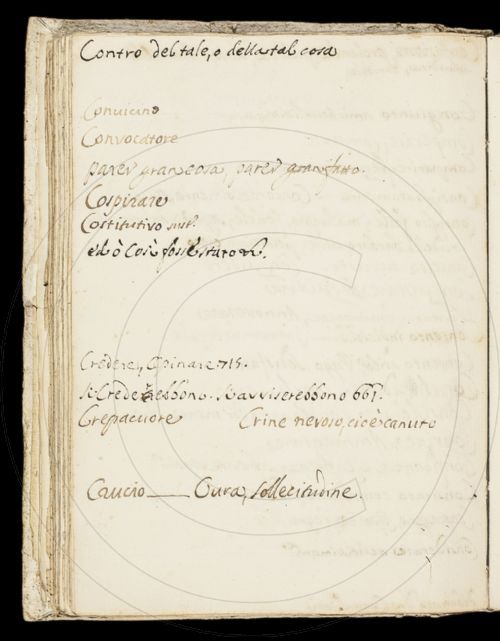 Contro del tale, o della tal cosa
Convicino
Convocatore
parer gran cosa, parer gran fatto.
Cospirare
Costitutivo sust.
così fosse stato
Credere, Opinare 715.
si crederebbono. si avviserebbono 661.
Crepacuore Crine nevoso, cioè canuto
Crucio Cura, sollecitudine.